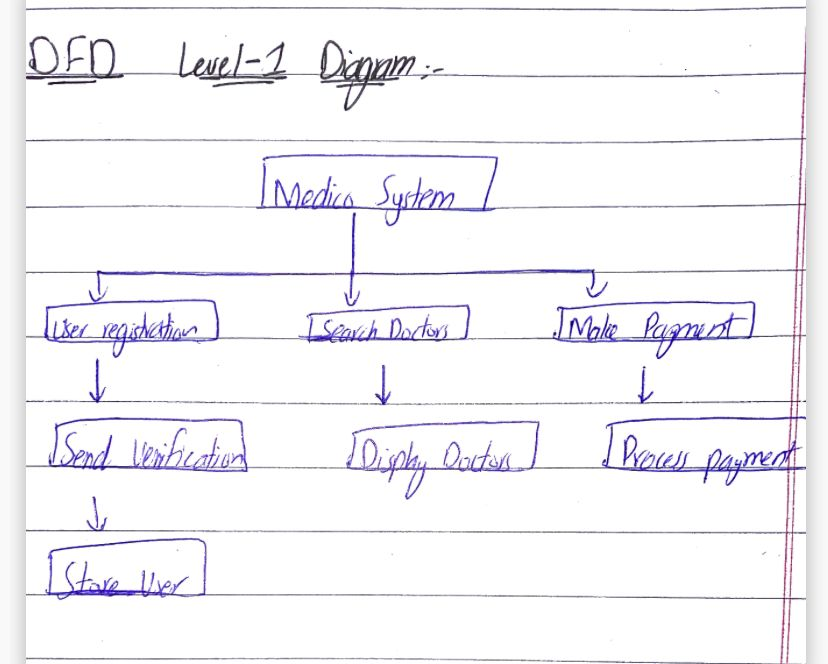 DFD Level-1 Diagram:-
Medico System
User registration Search Doctors Make Payment
Send Verification Display Doctors Process payment
Store User